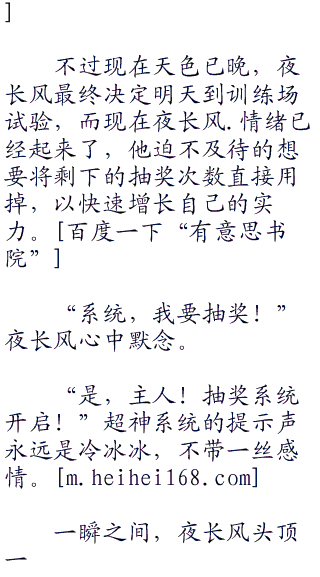 ]
不过现在天色已晚，夜
长风最终决定明天到训练场
试验，而现在夜长风.情绪已
经起来了，他迫不及待的想
要将剩下的抽奖次数直接用
掉，以快速增长自己的实
力。[百度一下“有意思书
院”]
“系统，我要抽奖！”
夜长风心中默念。
“是，主人！抽奖系统
开启！”超神系统的提示声
永远是冷冰冰，不带一丝感
情。[m.heihei168.com]
一瞬之间，夜长风头顶
一